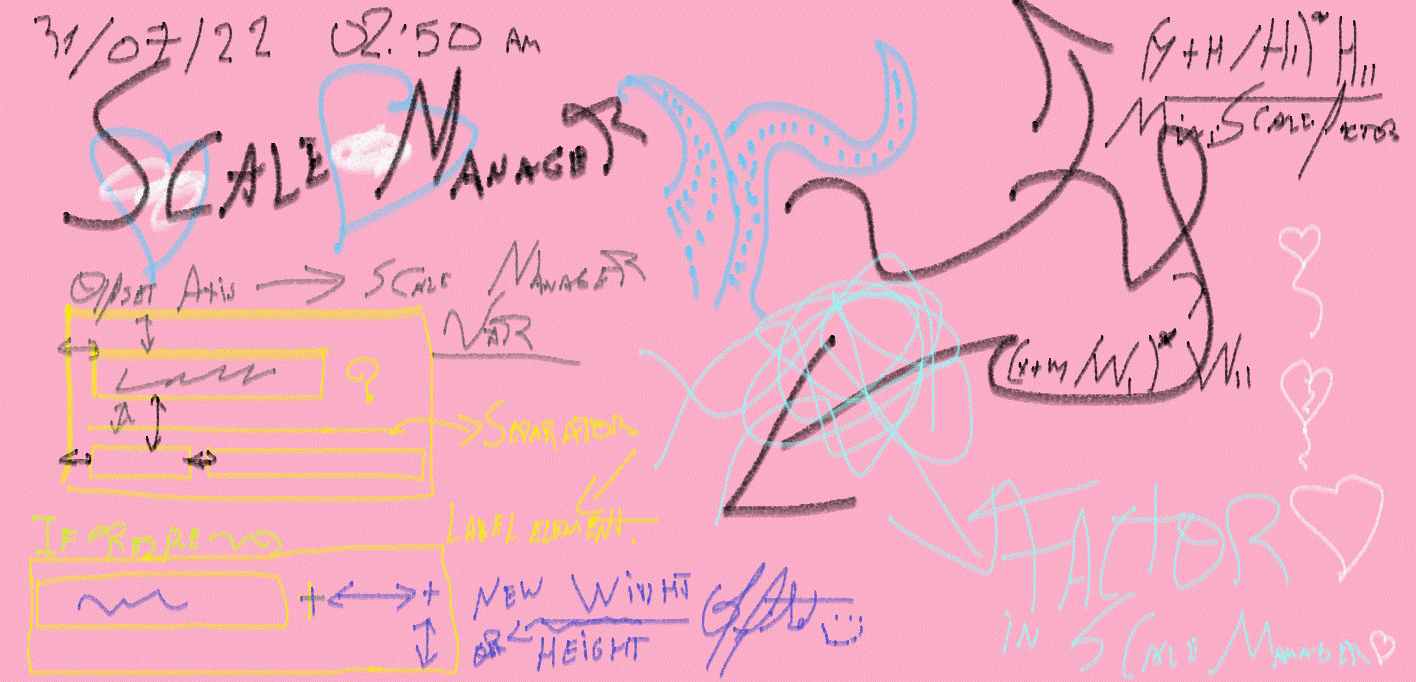 31/07/22 02:50 AM
SCALE MANAGER
OFFSET AXIS → SCALE MANAGER
VAR
?
→ SEPARATOR
LABEL ELEMENT.
IF
+ ↔ +
NEW WIDTH
OR HEIGHT
(Y+H/H1)* H11
MIN SCALE FACTOR
(X+M/W1)* W11
FACTOR
IN SCALE MANAGER